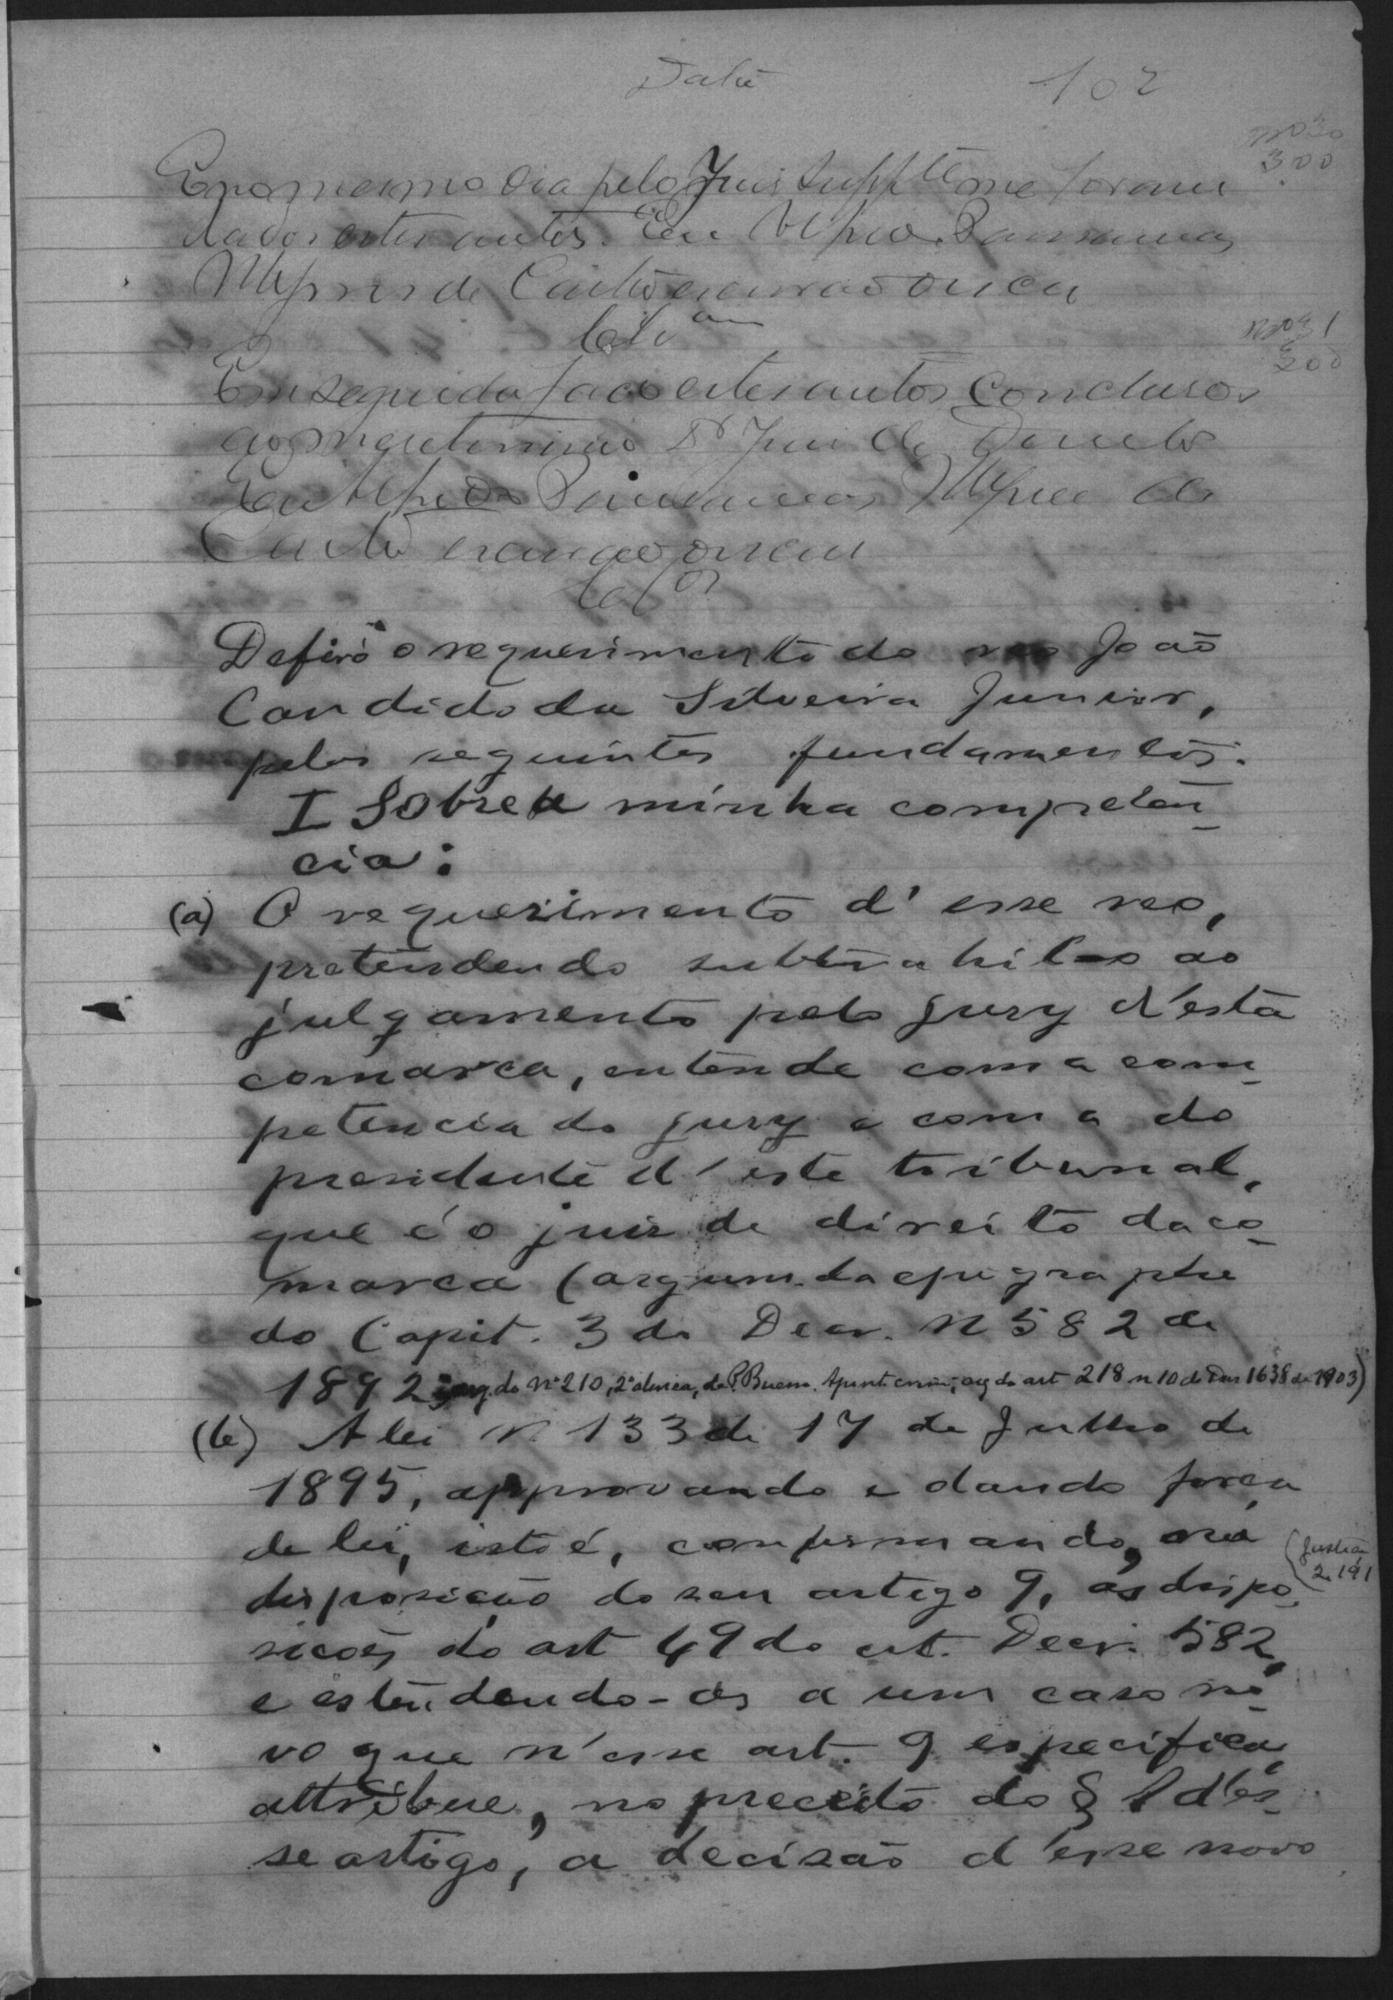 Data
102
Eno mesmo dia pelo Juis Suppte me foram
nº 30
300
dados estes autos. Eu Alfredo Pausanias
de Castro escrivão o escrevi
Clsam
nº 31
300
Em seguida faço estes autos conclusos
ao meretissimo Dr Juis de Direito
Eu Alfredo Pausanias de
Castro escrivão o escrevi
Clos
Defiro o requerimento do reo João
Candido da Silveira Junior,
pelos seguintes fundamentos:
I Sobre a minha competen-
cia:
(a) O requerimento d'esse reo,
pretendendo subtrahil-o ao
julgamento pelo jury d'esta
comarca, entende com a com-
petencia do jury e com a do
presidente d'este tribunal,
que é o juiz de direito da co-
marca (argum. da epigraphe
do Capit. 3 do Decr. N 582 de
1892, arg. do nº 210, 2ª alinea, de P. Bueno. Apont. crim; arg do art 218 n 10 do Dec 1638 de 1903)
(b) A lei N. 133 de 17 de Julho de
1895, approvando e dando força
de lei, isto é, confirmando, na
disposição do seu artigo 9, as dispo-
(
2. 191
sicões do art 49 do cit. Decr. 582,
e estendendo-as a um caso no-
vo que n'esse art. 9 especifica,
attribue, no preceito do § 1 d'es-
se artigo, a decisão d'esse novo